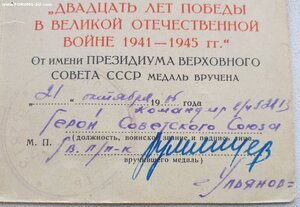 www.FORUMS-SU.com
„ДВАДЦАТЬ ЛЕТ ПОБЕДЫ
В ВЕЛИКОЙ ОТЕЧЕСТВЕННОЙ
ВОЙНЕ 1941—1945 гг.“
От имени ПРЕЗИДИУМА ВЕРХОВНОГО
СОВЕТА СССР МЕДАЛЬ ВРУЧЕНА
„21“ октября 19 года
командир
Герой Советского Союза
М. П. (должность, воинское звание и подпись
гв. п/п-к
вручившего медаль)